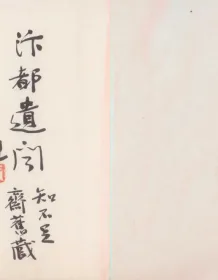 汴都遺聞
知不足
齋舊藏